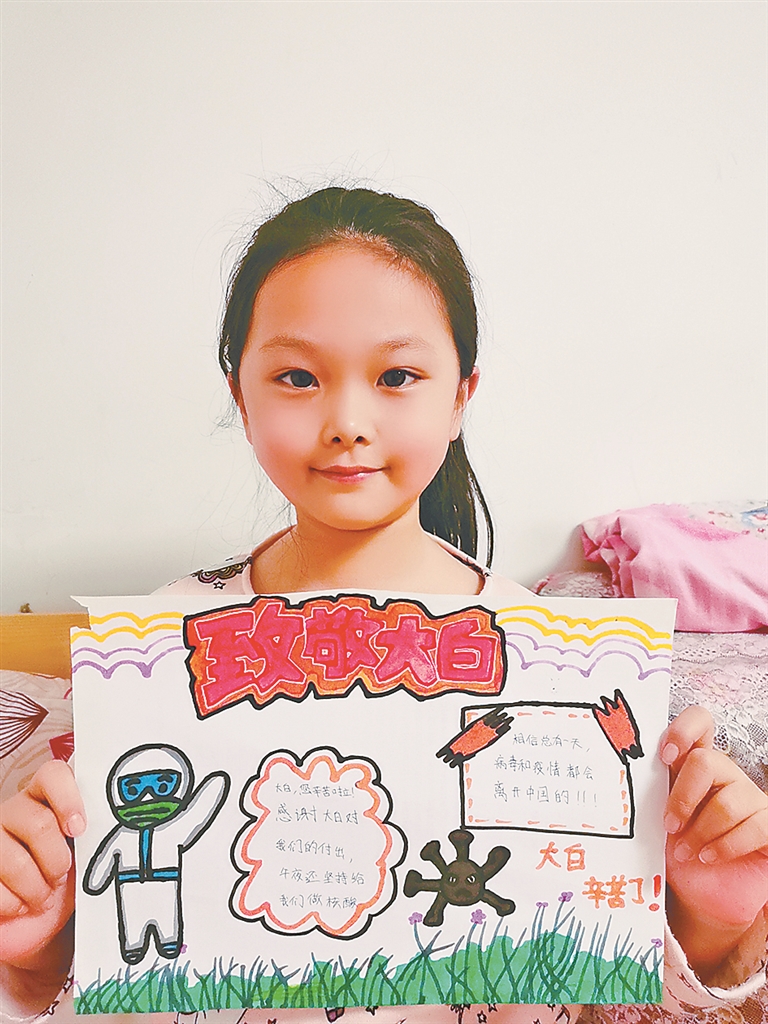 致敬大白
大白,您辛苦啦!
感谢大白对
我们的付出,
午夜还坚持给
我们做核酸
相信总有一天,
病毒和疫情都会
离开中国的!!!
大白
辛苦了!